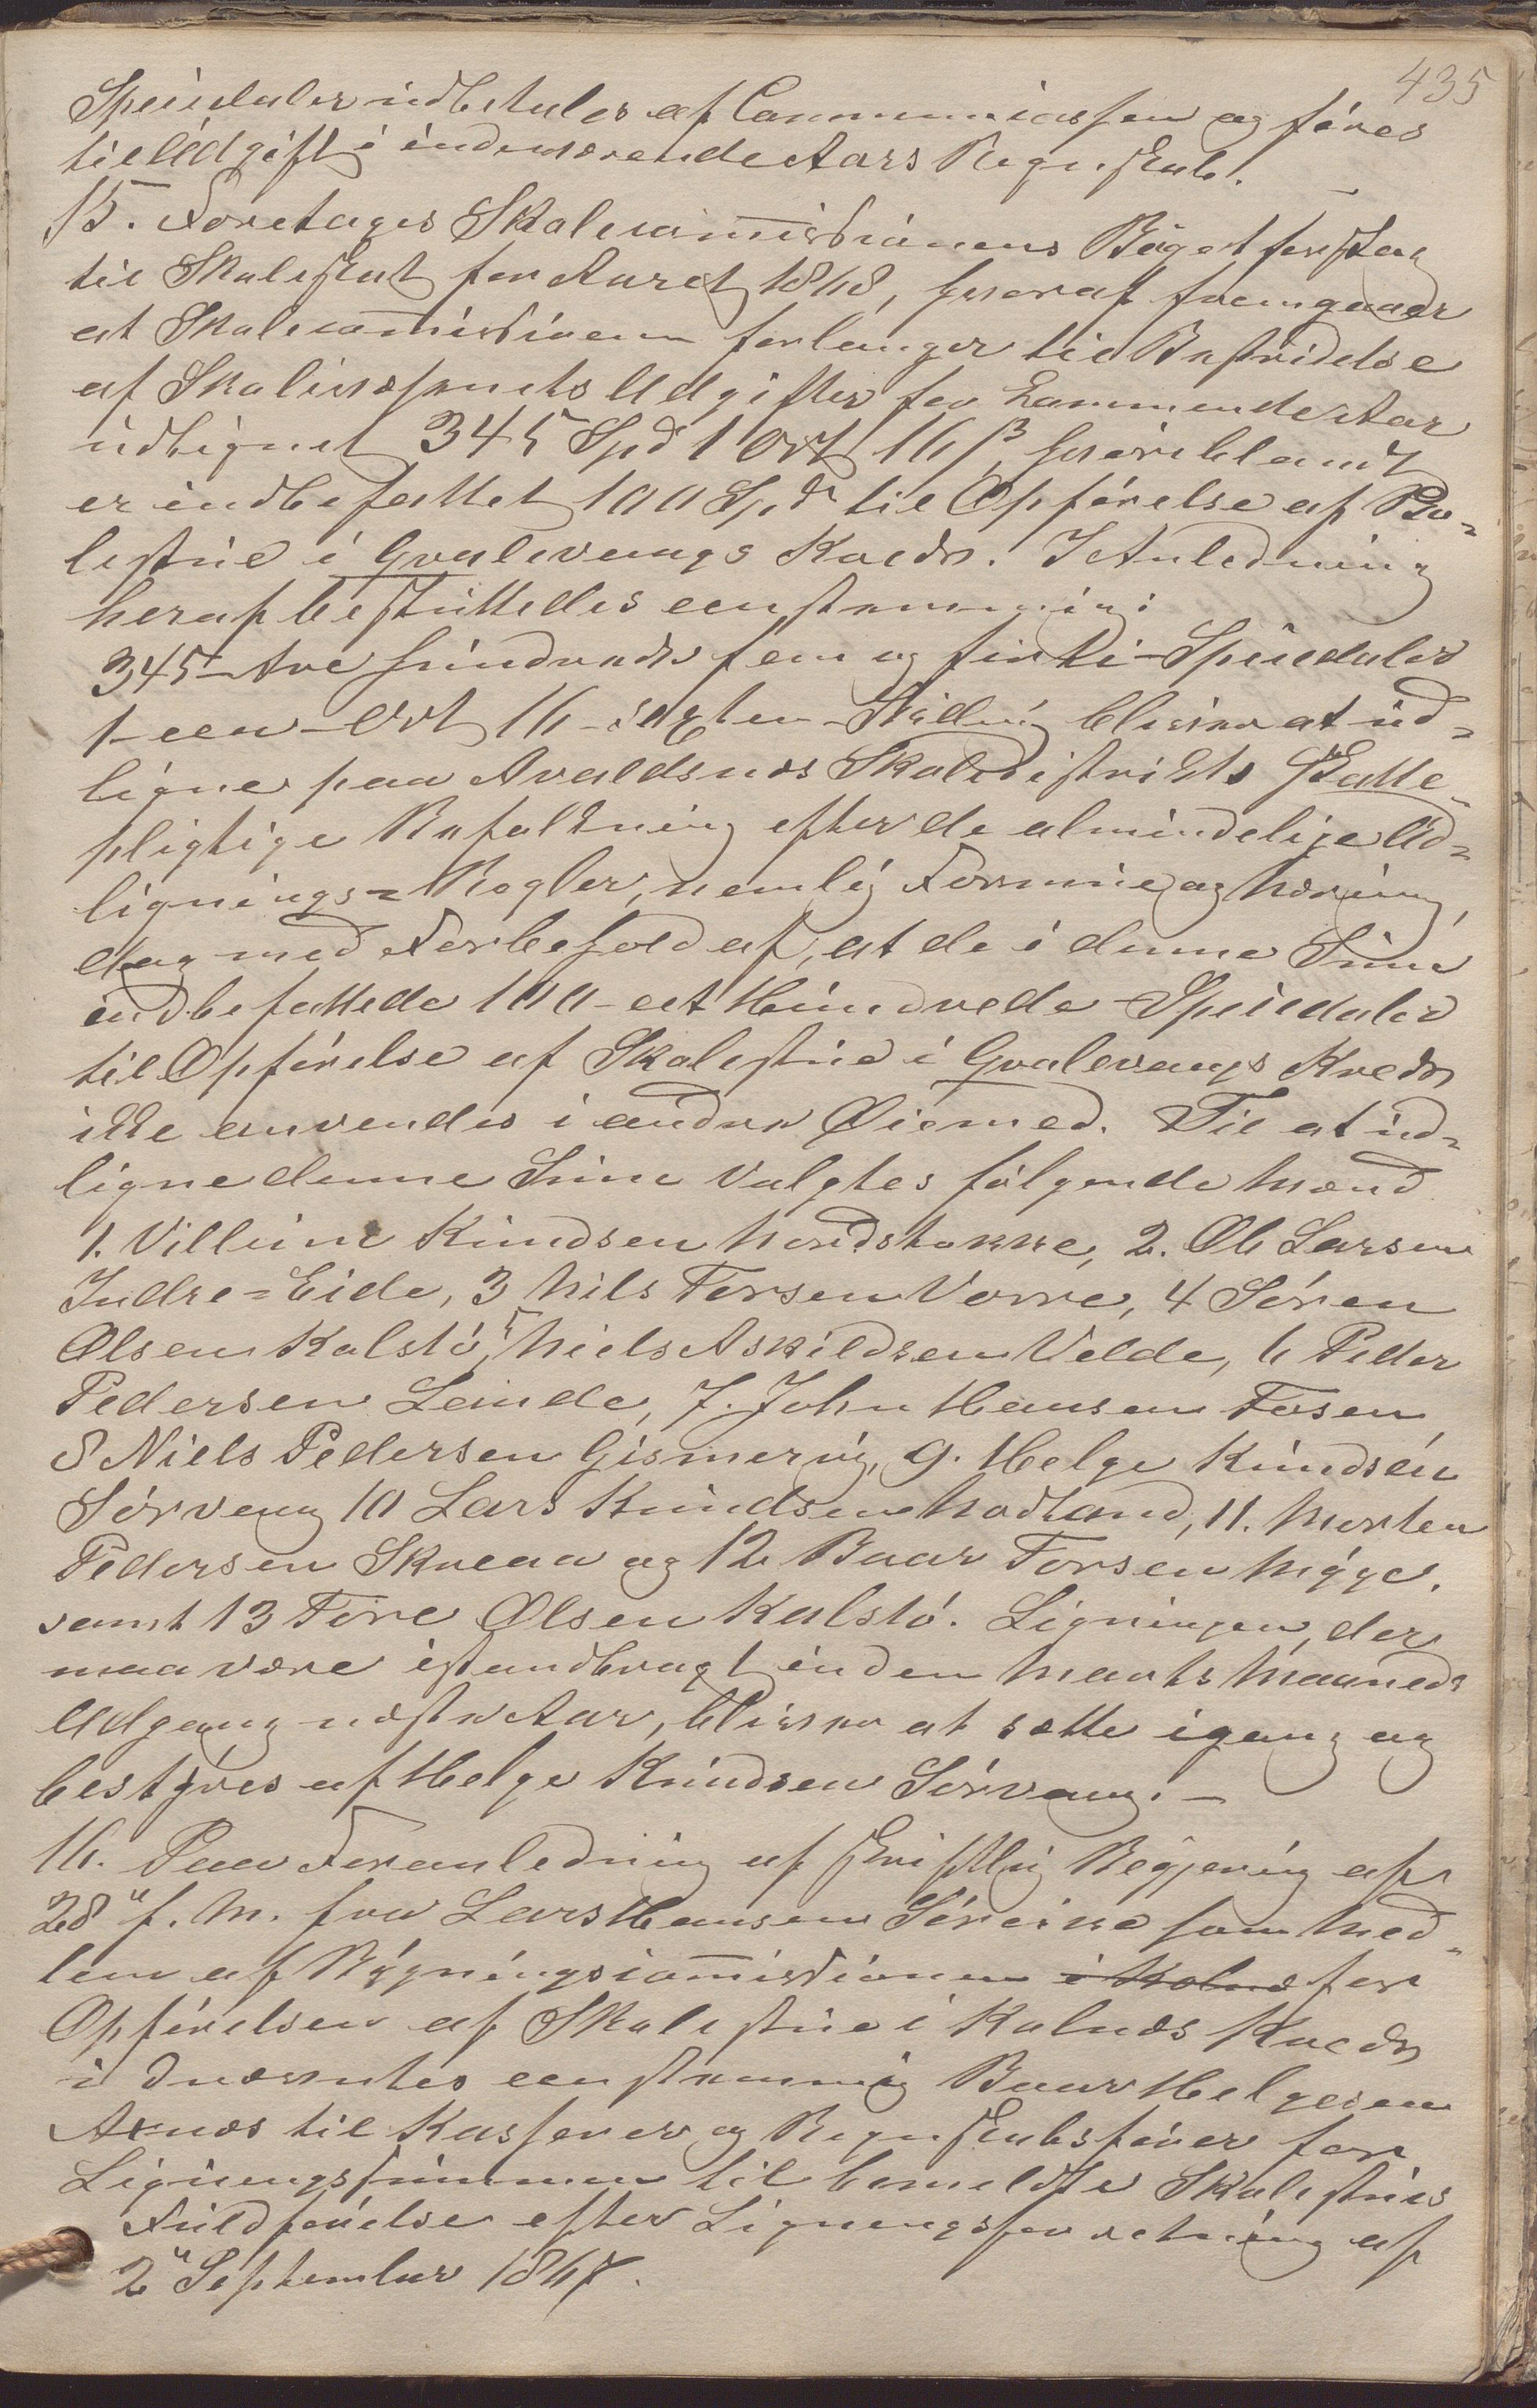 435
Speciedaler udbetales af Communecassen og föres
til Udgift i indeværende Aars Regnskab.
15. Foretoges Skolecommissionens Budgetforslag
til Skoleskat for Aaret 1868, hvoraf fremgaaer
at Skolecommissionen forlanger til Bestridelse
af Skolevæsenets Udgifter for kommende Aar
udlignet 345 Spd 1 Ort 16 β, hvoriblandt
er indbefattet 100 Spdr til Opförelse af Sko-
lestue i Gvalevaags Kreds. I Anledning
heraf besluttedes eenstemmig:
345 - tre hundrede fem og firti - Speciedaler
1 - een - Ort 16 - sexten - Skilling bliver at ud-
ligne paa Avaldsnæs Skoledistrikts Skatte-
pligtige Befolkning efter de almindelige Ud-
lignings-Regler, nemlig Formue og Næring,
dog med Forbehold af, at de i denne Sum
indbefattede 100 - eet Hundrede - Speciedaler
til Opförelse af Skolestue i Gvalevaags Kreds
ikke anvendes i andre Øiemed. Til at ud-
ligne denne Sum valgtes følgende Mænd
1. Villum Knudsen Nordstokke, 2. Ole Larsen
Indre-Eide, 3 Nils Torsen Vorre, 4 Sören
Olsen Kalstö, 5 Niels Askildsen Velde, 6 Peder
Pedersen Leinde, 7. John Hansen Fosen
8 Niels Pedersen Gismervig, 9. Helge Knudsen
Sörvaag 10 Lars Knudsen Nodland, 11. Morten
Pedersen Skreaa og 12 Baar Torsen Mÿge.
samt 13 Tore Olsen Kalstö. Ligningen, der
maa være istandbragt inden Marts Maaneds
Udgang næste Aar, bliver at sætte igang og
bestÿres af Helge Knudsen Sörvaag. -
16. Paa Foranledning af skriftlig Begjering af
28" f. M. fra Lars Hansen Störeine som Med-
lem af Bÿgningscommissionen i Kolnæs for
Opförelsen af Skolestue i Kolnæs Kreds
udnævntes eenstemmig Baar Helgesen
Avnæs til Kasserer og Regnskabsförer for
Ligningssummen til bemeldte Skolestues
Fuldförelse efter Ligningsforretning af
2" September 1867.